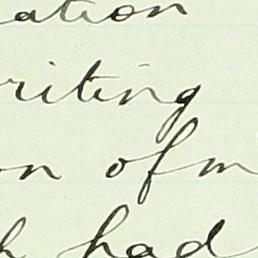 ation
riting
on of m
h had